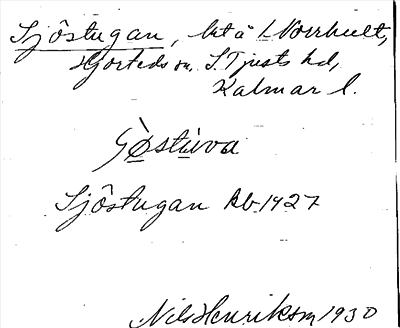 Sjöstugan, lht å L Norrhult,
Hjorteds sn, S. Tjusts hd,
Kalmar l.
Sjöstugan Rb 1927
Nils Henriksson 1930